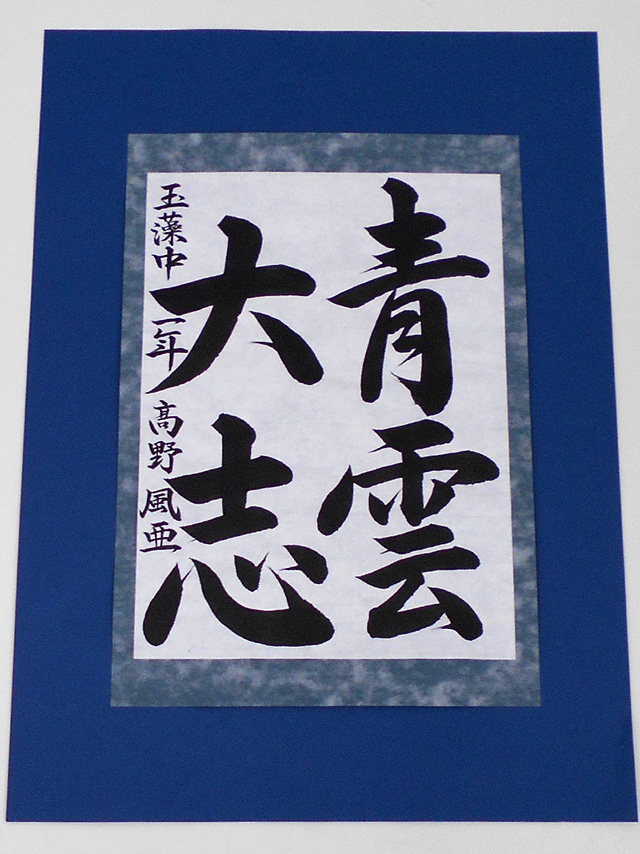 青雲
大志
玉藻中二年 髙野風亜